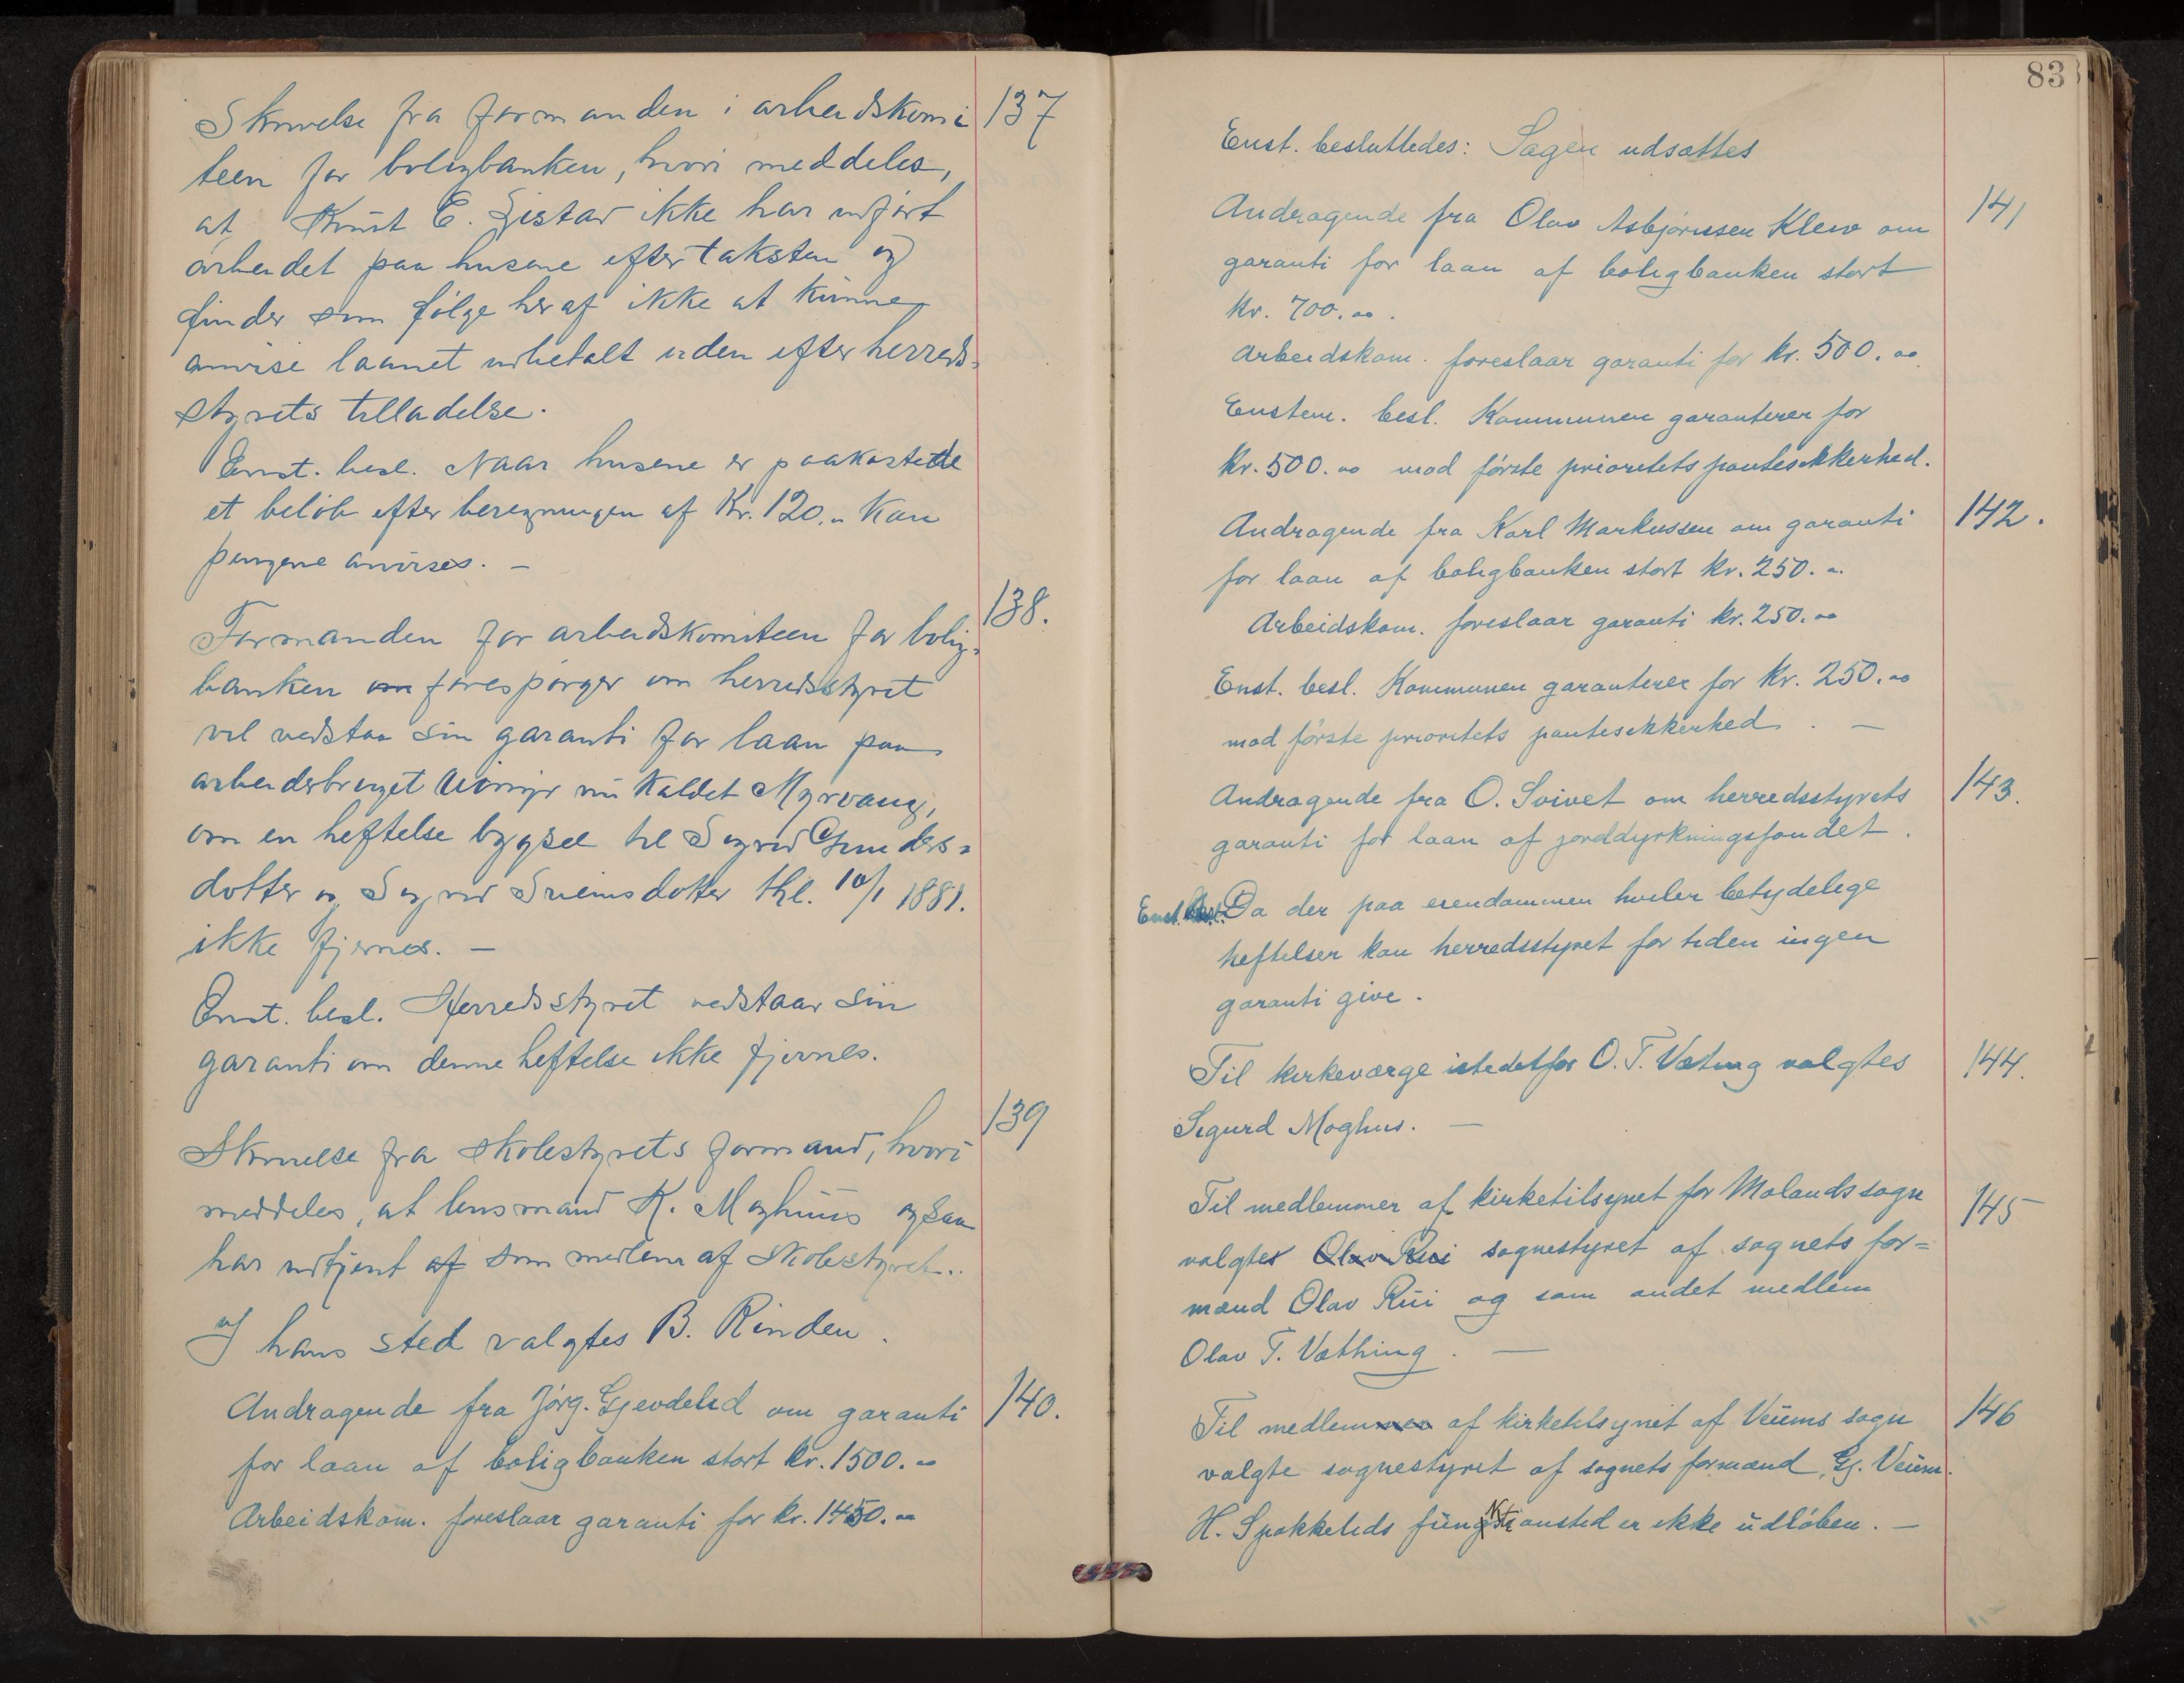 Skrivelse fra formanden i arbeidskomi 137
teen for boligbanken, hvori meddeles,
at Knut E. Sistar ikke har udført
arbeidet paa husene efter taksten og
finder som følge heraf ikke at kunne
anvise laanet udbetalt uden efter herreds=
styrets tilladelse.
Enst. besl. Naar husene er paakostede
et beløb efter beregningen af Kr. 120.- kan
pengene anvises. -
Formanden for arbeidskomiteen for bolig= 138.
banken om forespørger om herredsstyret
vil vedstaa sin garanti for laan paa
arbeiderbruget nu kaldet Myrvang,
om en heftelse bygsel til Sigrid Gunders=
dotter og Sigrid Sveinsdotter thl. 10/1 1881.
ikke fjernes. -
Enst. besl. Herredsstyret vedstaar sin
garanti om denne heftelse ikke fjernes.
Skrivelse fra skolestyrets formand, hvori 139
meddeles, at lensmand K. Moghuus ogsaa
har udtjent af som medlem af skolestyret..
I hans sted valgtes B. Rinden.
Andragende fra Jørg. Gjevdelid om garanti 140.
for laan af boligbanken stort kr. 1500.00
Arbeidskom. foreslaar garanti for kr. 1450.00
83
Enst. besluttedes: Sagen udsættes
Andragende fra Olav Asbjørnsen Kleiv om 141
garanti for laan af boligbanken stort
kr. 700.00.
Arbeidskom. foreslaar garanti for kr. 500.00
Enstem. besl. Kommunen garanterer for
kr. 500.00 mod første prioritets pantesikkerhed.
Andragende fra Karl Markussen om garanti 142.
for laan af boligbanken stort kr. 250.00
Arbeidskom. foreslaar garanti kr. 250.00
Enst. besl. Kommunen garanterer for kr. 250.00
mod første prioritets pantesikkerhed. -
Andragende fra O. Svivet om herredsstyrets 143.
garanti for laan af jorddyrkningsfondet.
Enst. besl. Da der paa eiendommen hviler betydelige
heftelser kan herredsstyret for tiden ingen
garanti give.
Til kirkeværge istedetfor O. T. Væting valgtes 144.
Sigurd Moghus. -
Til medlemmer af kirketilsynet for Molands sogn 145
valgtes Olav Rui sognestyret af sognets for=
mænd Olav Rui og som andet medlem
Olav T. Væthing. -
Til medlemmer af kirketilsynet af Veums sogn 146
valgte sognestyret af sognets formænd, Gj. Veum.
H. Spokkelids funktionstid er ikke udløben. -